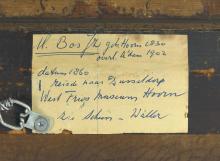 W. Bos Jz geb Hoorn 1830
overl. A'dam 1902
datum 1860
1 reisde naar Dusseldorp
West Fries Museum Hoorn
zie Scheen - Waller